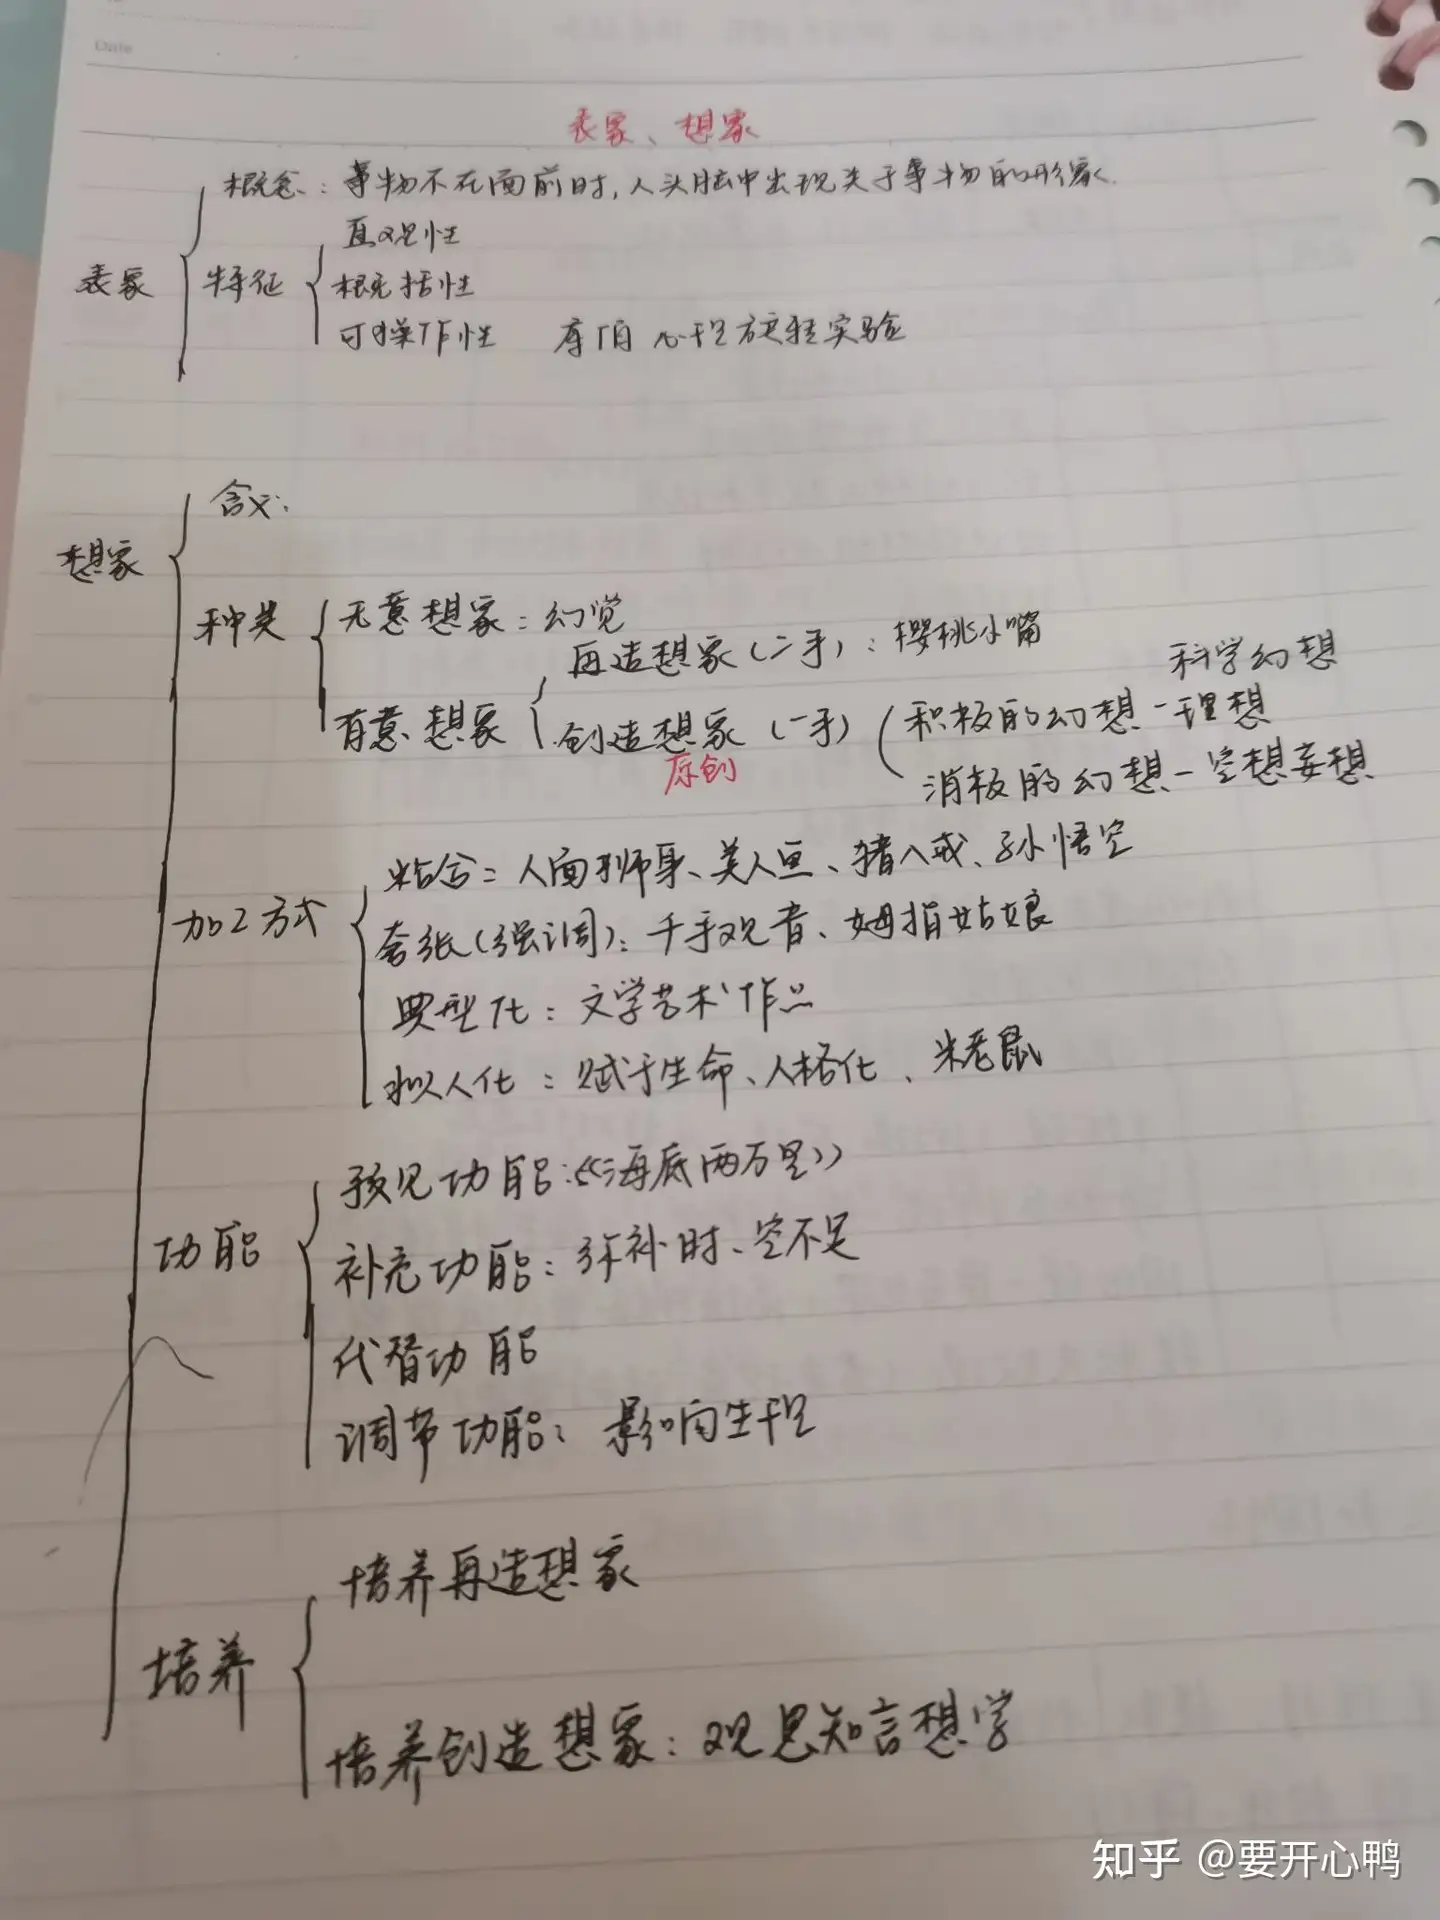 Date
表象、想象
概念：事物不在面前时，人头脑中出现关于事物的形象.
直观性
表象 特征 概括性
可操作性 库伯 心理旋转实验
含义：
想象
种类 无意想象：幻觉
再造想象（二手）：樱桃小嘴
科学幻想
有意想象 创造想象（一手） 积极的幻想－理想
原创
消极的幻想－空想妄想
粘合：人面狮身、美人鱼、猪八戒、孙悟空
加工方式 夸张（强调）：千手观音、姆指姑娘
典型化：文学艺术作品
拟人化：赋于生命、人格化、米老鼠
预见功能：《海底两万里》
功能 补充功能：弥补时、空不足
代替功能
调节功能：影响生理
培养再造想象
培养
培养创造想象：观思知言想学
知乎 @要开心鸭